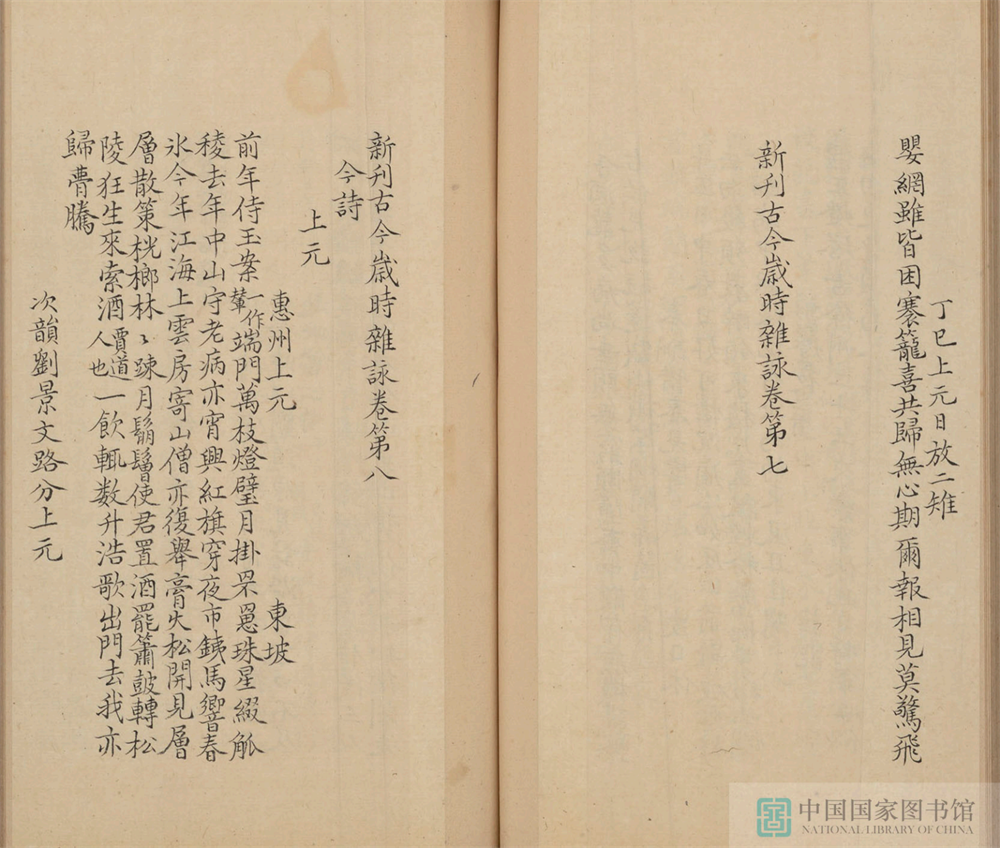 丁巳上元日放二雉
嬰網雖皆困褰籠喜共歸無心期爾報相見莫驚飛
新刋古今歲時雜詠卷第七
新刋古今歲時雜詠卷第八
今詩
上元
惠州上元 東坡
前年侍玉案一作輦端門萬枝燈璧月掛罘罳珠星綴觚
稜去年中山守老病亦宵興紅旗穿夜市鐵馬響春
氷今年江海上雲房寄山僧亦復舉膏火松開見層
層散策桄榔林〻疎月鬅鬠使君置酒罷簫皷轉松
陵狂生來索酒賈道人也一飲輒数升浩歌出門去我亦
歸瞢騰
次韻劉景文路分上元
中国国家图书馆
NATIONAL LIBRARY OF CHINA